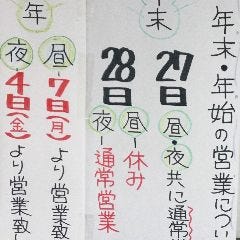 年末・年始の営業につい
年末
27日 昼・夜 共に通常
28日 昼-休み
夜-通常営業
年
昼-7日(月)より営業致し
夜-4日(金)より営業致し